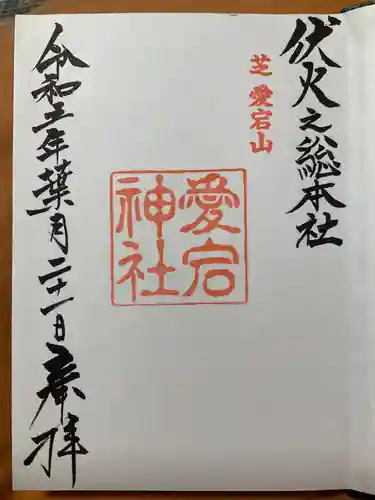 伏火之總本社
芝愛宕山
愛宕
神社
令和五年葉月二十一日奉拝